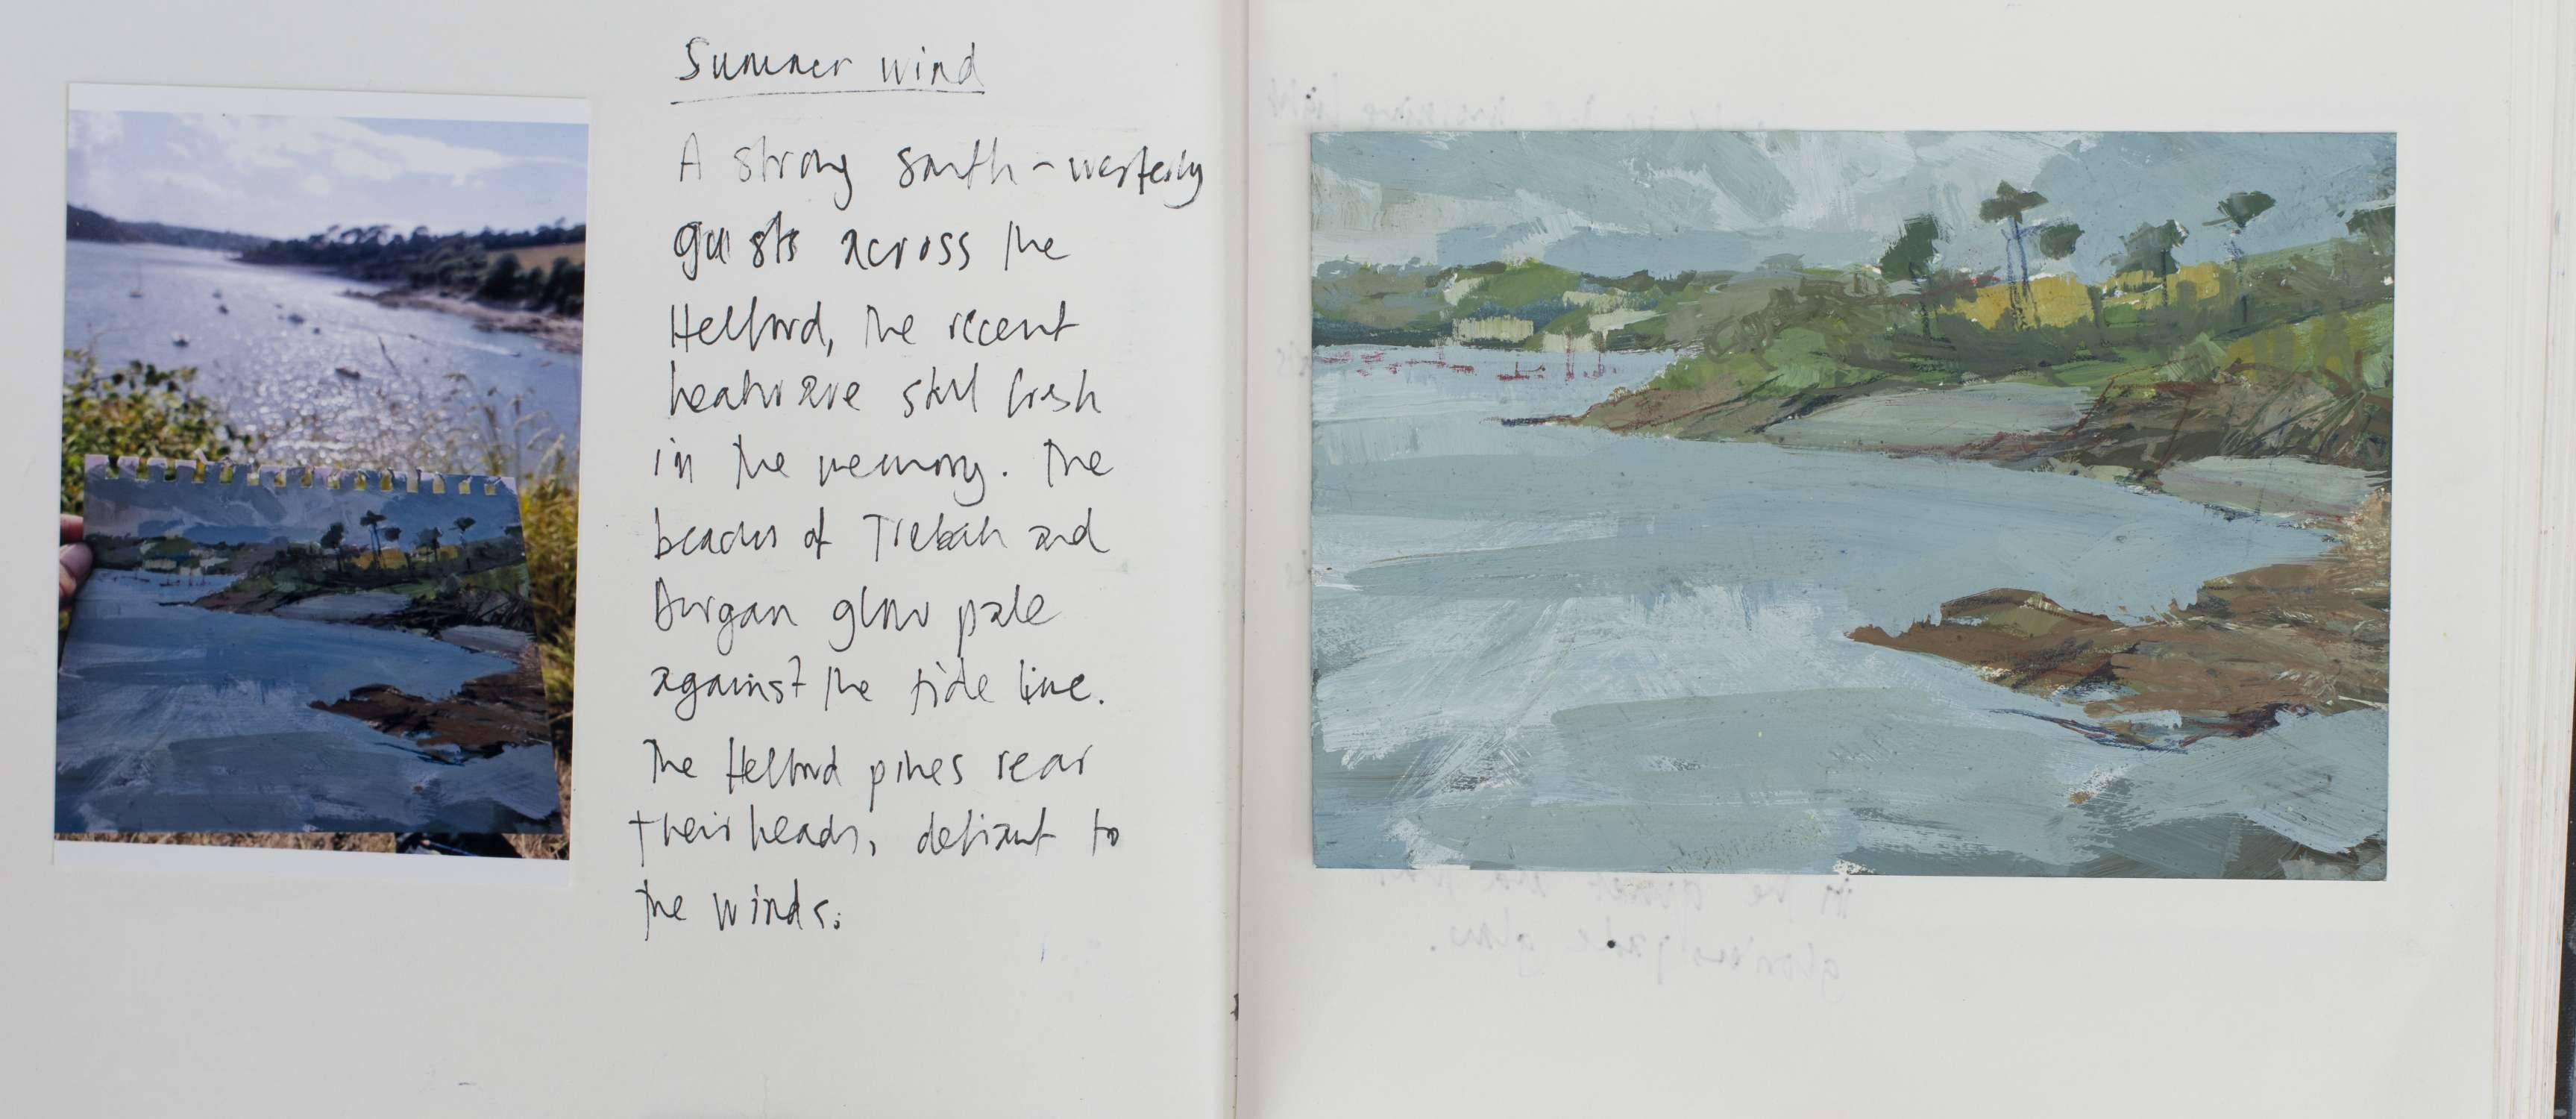 Summer wind
A strong south-westerly
gusts across the
Helford, the recent
heatwave still fresh
in the memory. The
beaches of Trebah and
Durgan glow pale
against the tide line.
The Helford pines rear
their heads, defiant to
the winds.